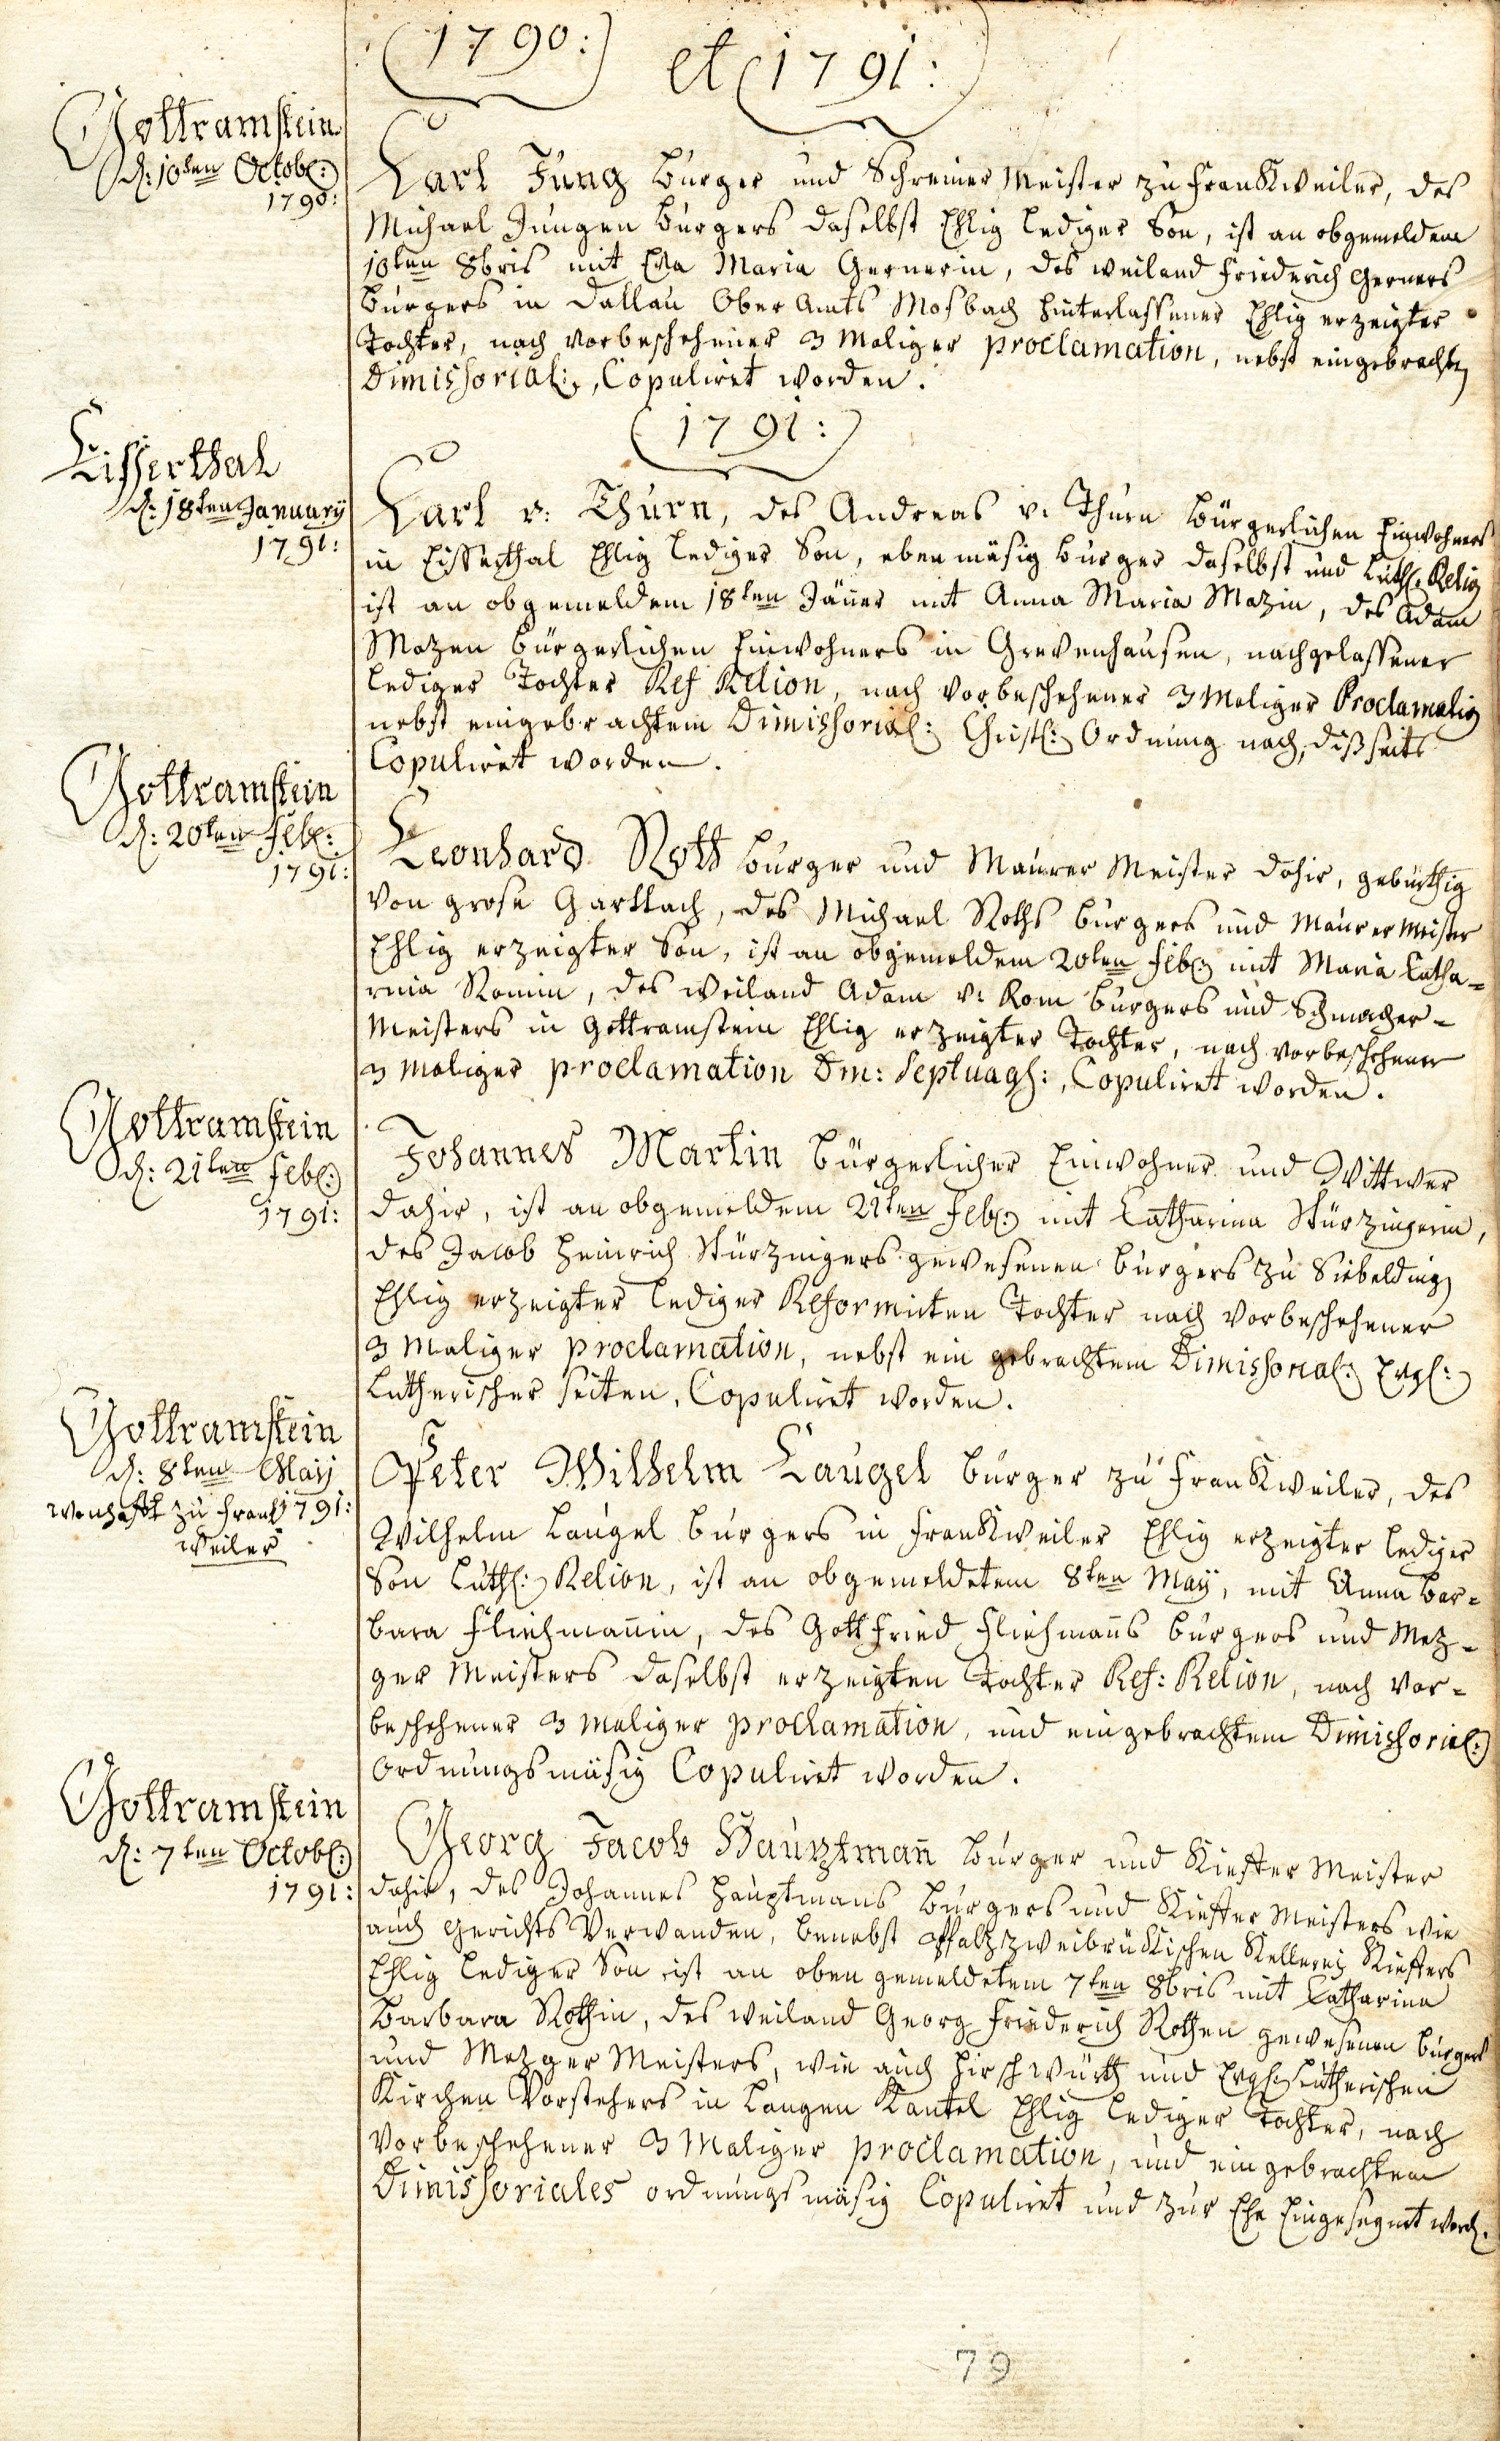 1790: et 1791:
Gottramstein
d: 10ten Octobr:
1790:
Carl Jung Burger und Schreiner Meister zu Franckweiler, des
Michael Jungen Burgers daselbst Ehlig lediger Son, ist an obgemeldem
10ten 8bris mit Eva Maria Gernerin, des weiland Friederich Gerners
Burgers in Dallau Ober Amts Mosbach hinterlassener Ehlig erzeigter
Tochter, nach vorbeschehener 3 Maliger proclamation, nebst eingebrachten
Dimissorial:, Copuliret worden.
1791:
Eisserthal
d: 18ten January
1791:
Carl v: Thurn, des Andreas v: Thurn Bürgerlichen Einwohners
in Eisserthal Ehlig lediger Son, eben mäsig Burger daselbst und Luth: Relig
ist an obgemeldem 18ten Jäner mit Anna Maria Mazin, des Adam
Mazen bürgerlichen Einwohners in Grevenhausen, nachgelassener
lediger Tochter Ref Relion, nach vorbeschehener 3 Maliger Proclamation
nebst eingebrachtem Dimissorial: Christl: Ordnung nach, disseits
Copuliret worden.
Gottramstein
d: 20ten Feb:
1791:
Leonhard Roth Burger und Maurer Meister dahir, gebürthig
von grose Gartlach, des Michael Roths Burgers und Maurer Meister
Ehlig erzeigter Son, ist an obgemeldem 20ten Feb: mit Maria Catha-
rina Romin, des weiland Adam v: Rom Burgers und Schmacher-
Meisters in Gottramstein Ehlig erzeigter Tochter, nach vorbeschehener
3 Maliger proclamation Dm: Septuag:, Copuliret worden.
Gottramstein
d: 21ten Feb:
1791:
Johannes Martin Bürgerlicher Einwohner und Wittwer
dahir, ist an obgemeldem 21ten Feb: mit Catharina Stürzingerin,
des Jacob Heinrich Stürzingers gewesenen Burgers zu Siebelding
Ehlig erzeigter lediger Reformirten Tochter nach vorbeschehener
3 Maliger proclamation, nebst ein gebrachtem Dimissorial: Evgl:
Lutherischer seiten, Copuliret worden.
Gottramstein
d: 8ten May
wonhafft zu Franck 1791:
weiler
Peter Wilhelm Laugel Burger zu Franckweiler, des
Wilhelm Laugel Burgers in Franckweiler Ehlig erzeigter lediger
Son Luth: Relion, ist an obgemeldetem 8ten May, mit Anna Bar-
bara Fliehmannin, des Gottfried Fliehmans Burgers und Mez-
ger Meisters daselbst erzeigten Tochter Ref: Relion, nach vor-
beschehener 3 Maliger proclamation, und eingebrachtem Dimissorial:
ordnungsmäsig Copuliret worden.
Gottramstein
d: 7ten Octobr:
1791:
Georg Jacob Hauptman Burger und Kieffer Meister
dahir, des Johannes Hauptmans Burgers und Kieffer Meisters wie
auch Gerichts Verwanden, benebst Pfalzzweibrückischen Kellerey Kieffers
Ehlig lediger Son ist an oben gemeldetem 7ten 8bris mit Catharina
Barbara Rothin, des weiland Georg Friederich Rothen gewesenen Burgers
und Mezger Meisters, wie auch Hirsch würth und Evgl: Lutherischen
Kirchen Vorstehers in Langen Kantel Ehlig lediger Tochter, nach
vorbeschehener 3 Maliger proclamation, und eingebrachtem
Dimissoriales ordnungsmäsig Copuliret und zur Ehe Eingesegnet word.
79